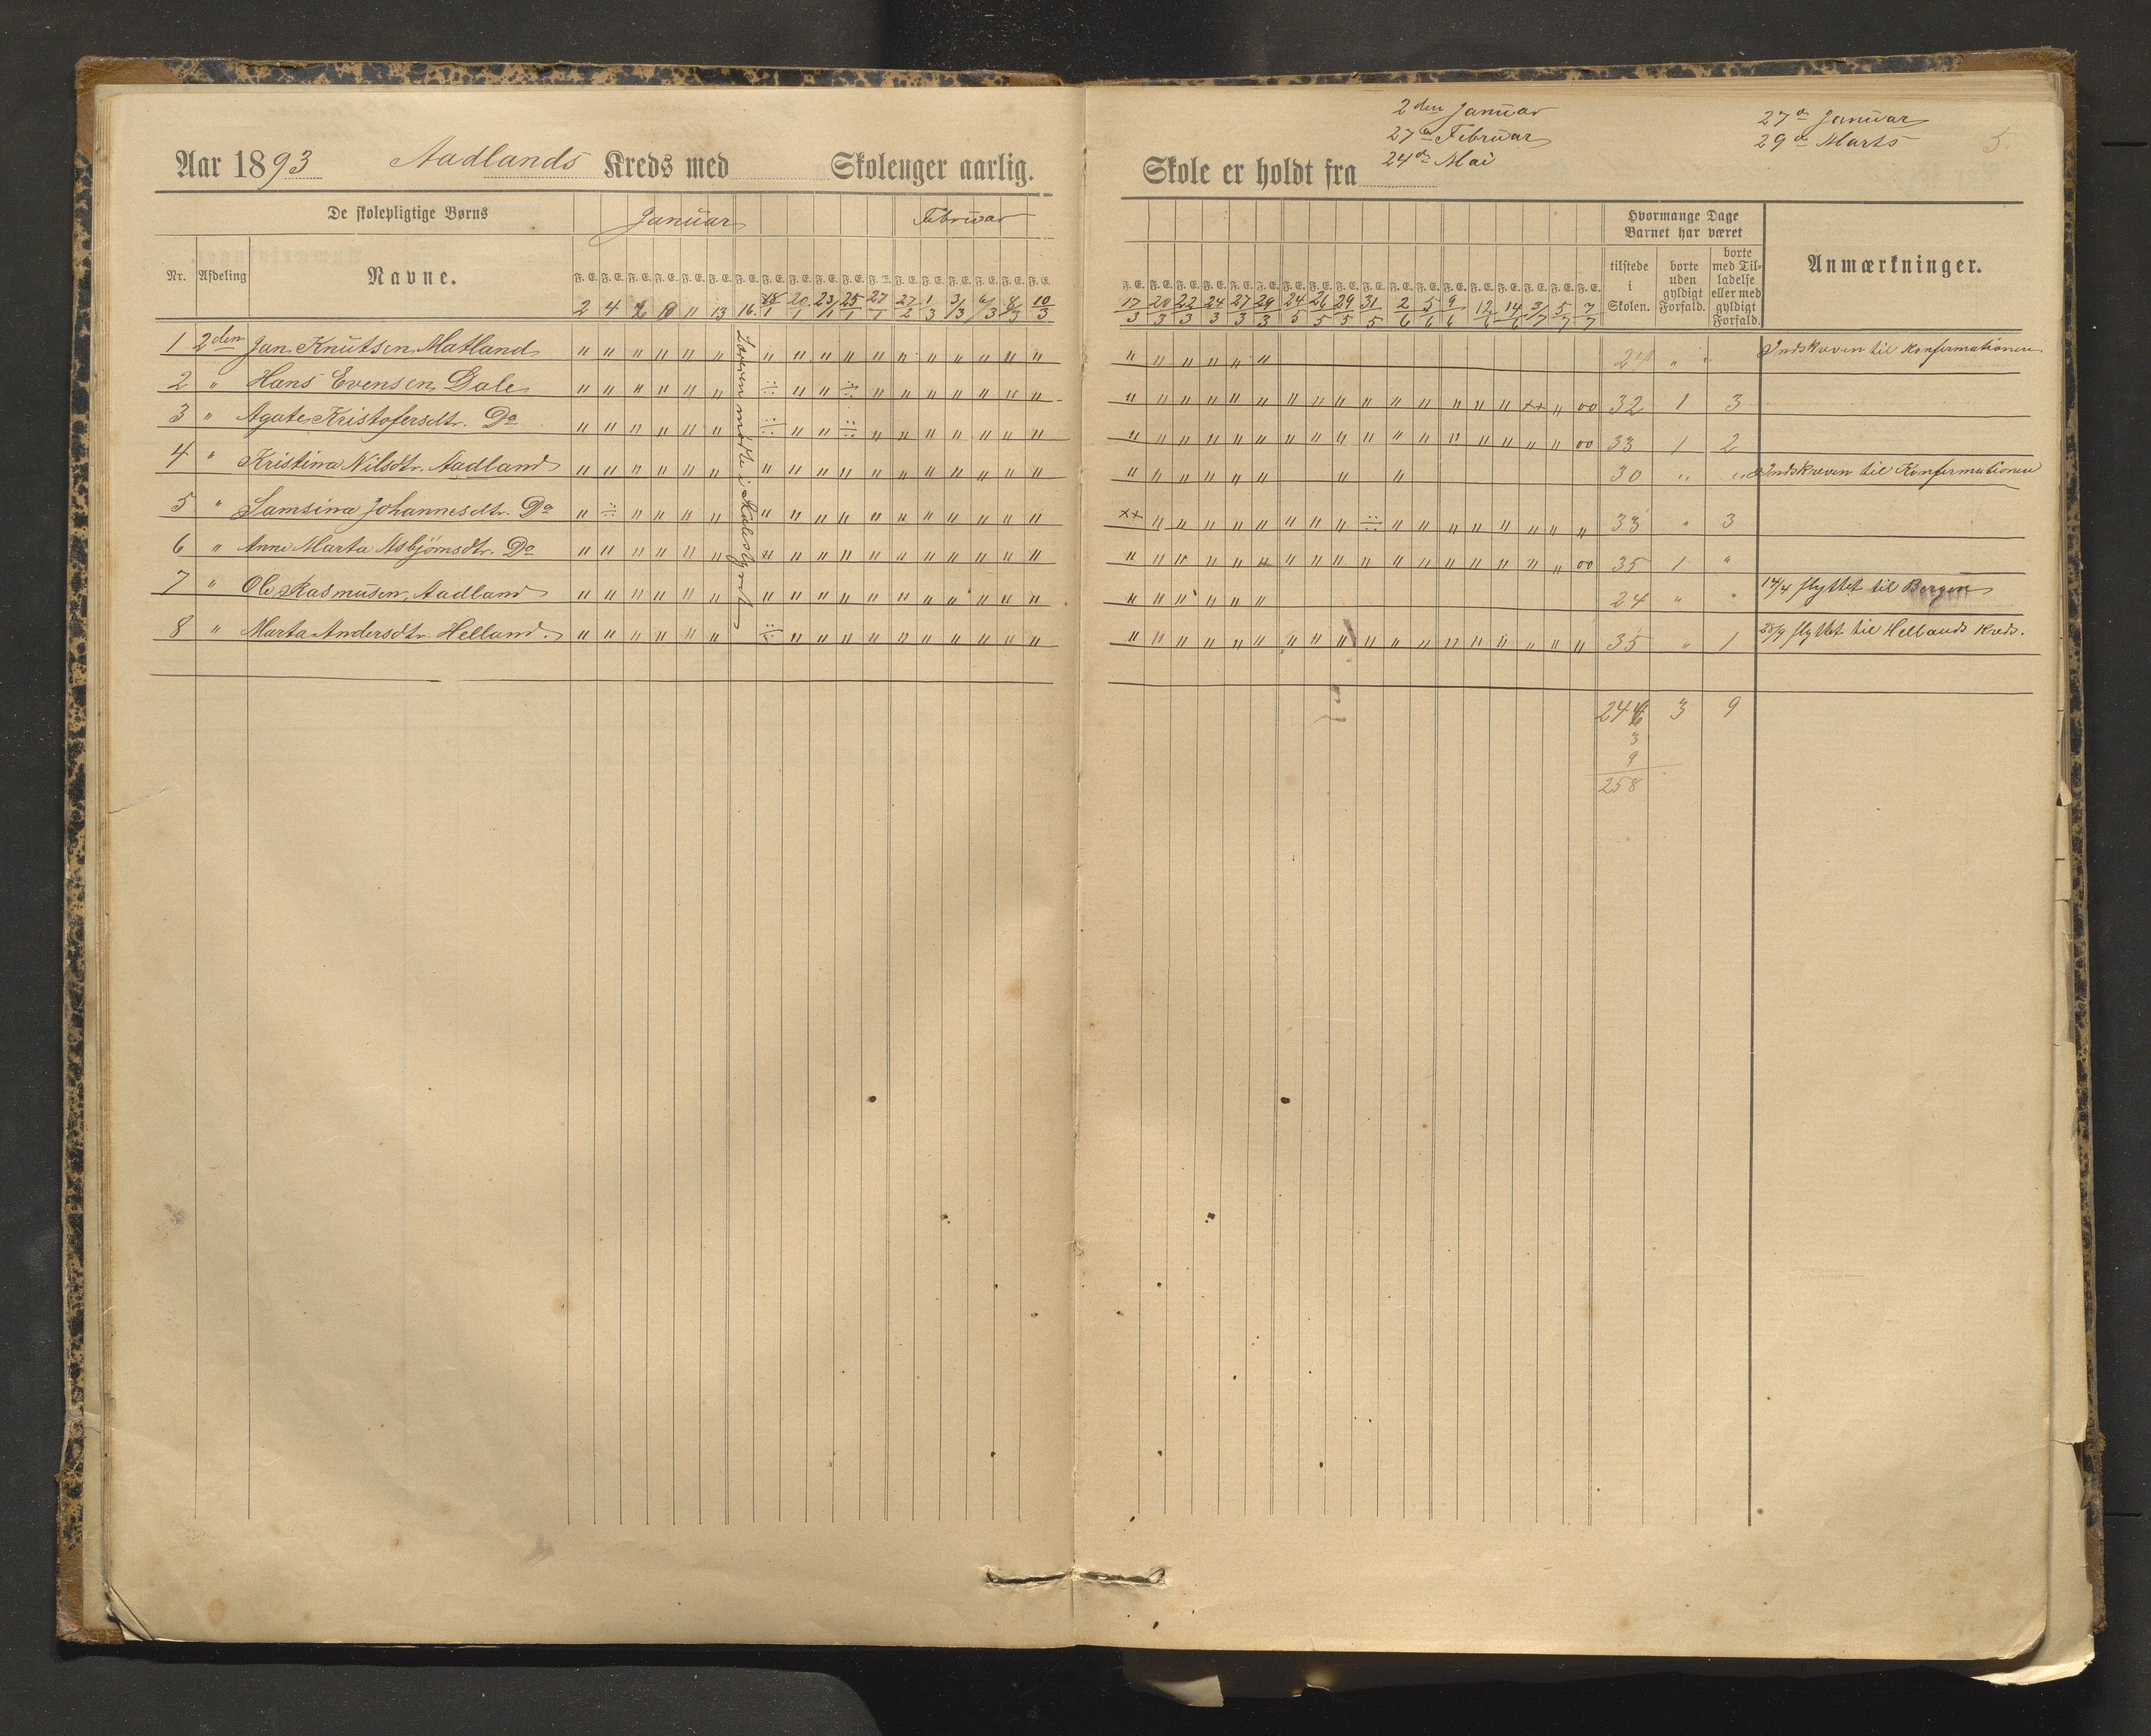 Aar 1893 Aadlands Kreds med Skoleuger aarlig.
De skolepligtige Børns Januar Februar
Nr. Afdeling Navne. F. E. F. E. F. E. F. E. F. E. F. E. F. E. F. E. F. E. F. E. F. E. F. E. F. E. F. E. F. E. F. E. F. E. F. E.
2 4 10 11 13 16 18/1 20/1 23/1 25/1 27/1 27/2 1/3 3/3 6/3 8/3 10/3
1 2den Jan Knutsen Matland
2 " Hans Evensen Dale
3 " Agate Kristofersdtr. Do
4 " Kristina Nilsdtr. Aadland
5 " Samsina Johannesdtr. Do
6 " Anne Marta Asbjørnsdtr. Do
7 " Ole Rasmusen, Aadland
8 " Marta Andersdtr. Helland.
Læreren mødte i Skolestyret
2den Januar 27de Januar
27de Februar 29de Marts
24de Mai
5.
Skole er holdt fra
Hvormange Dage
Barnet har været
tilstede i Skolen. borte uden gyldigt Forfald. borte med Tilladelse eller med gyldigt Forfald. Anmærkninger.
F. E. F. E. F. E. F. E. F. E. F. E. F. E. F. E. F. E. F. E. F. E. F. E. F. E. F. E. F. E. F. E. F. E. F. E.
17/3 20/3 22/3 24/3 27/3 29/3 24/5 26/5 29/5 31/5 2/6 5/6 9/6 12/6 14/6 3/7 5/7 7/7
24 " " Indskreven til Konfirmationen
32 1 3
33 1 2
30 " " Indskreven til Konfirmationen
33 " 3
35 1 "
24 " " 14/4 flyttet til Bergen
35 " 1 25/9 flyttet til Hellands Kreds.
246 3 9
3
9
258